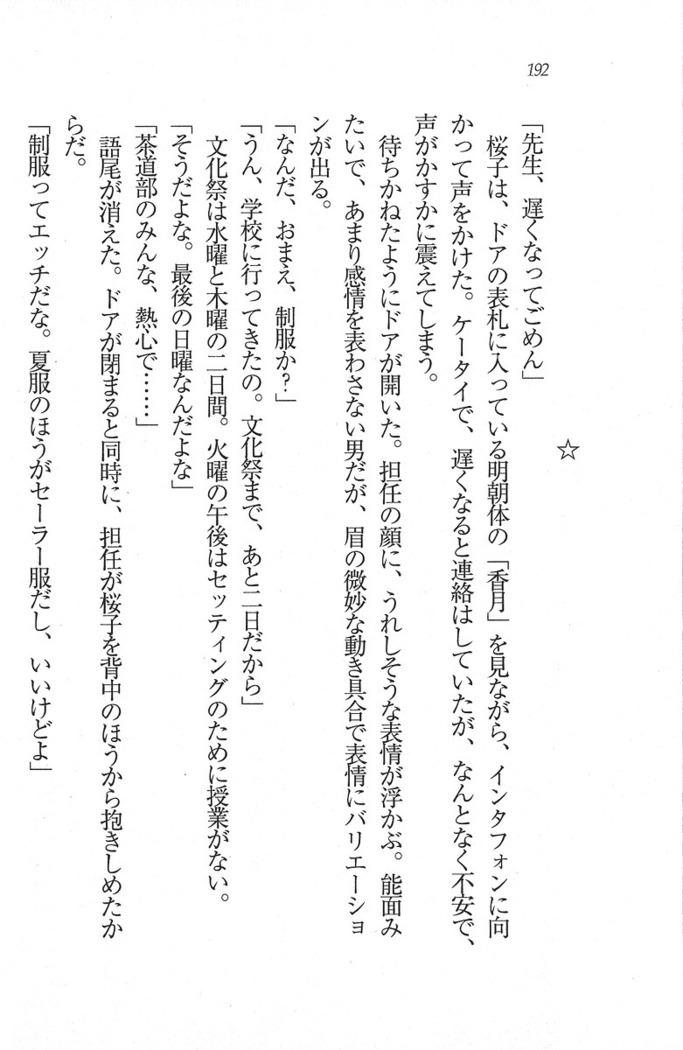 192
☆
「先生、遅くなってごめん」
桜子は、ドアの表札に入っている明朝体の「香月」を見ながら、インタフォンに向
かって声をかけた。ケータイで、遅くなると連絡はしていたが、なんとなく不安で、
声がかすかに震えてしまう。
待ちかねたようにドアが開いた。担任の顔に、うれしそうな表情が浮かぶ。能面み
たいで、あまり感情を表わさない男だが、眉の微妙な動き具合で表情にバリエーショ
ンが出る。
「なんだ、おまえ、制服か?」
「うん、学校に行ってきたの。文化祭まで、あと二日だから」
文化祭は水曜と木曜の二日間。火曜の午後はセッティングのために授業がない。
「そうだよな。最後の日曜なんだよな」
「茶道部のみんな、熱心で……」
語尾が消えた。ドアが閉まると同時に、担任が桜子を背中のほうから抱きしめたか
らだ。
「制服ってエッチだな。夏服のほうがセーラー服だし、いいけどよ」